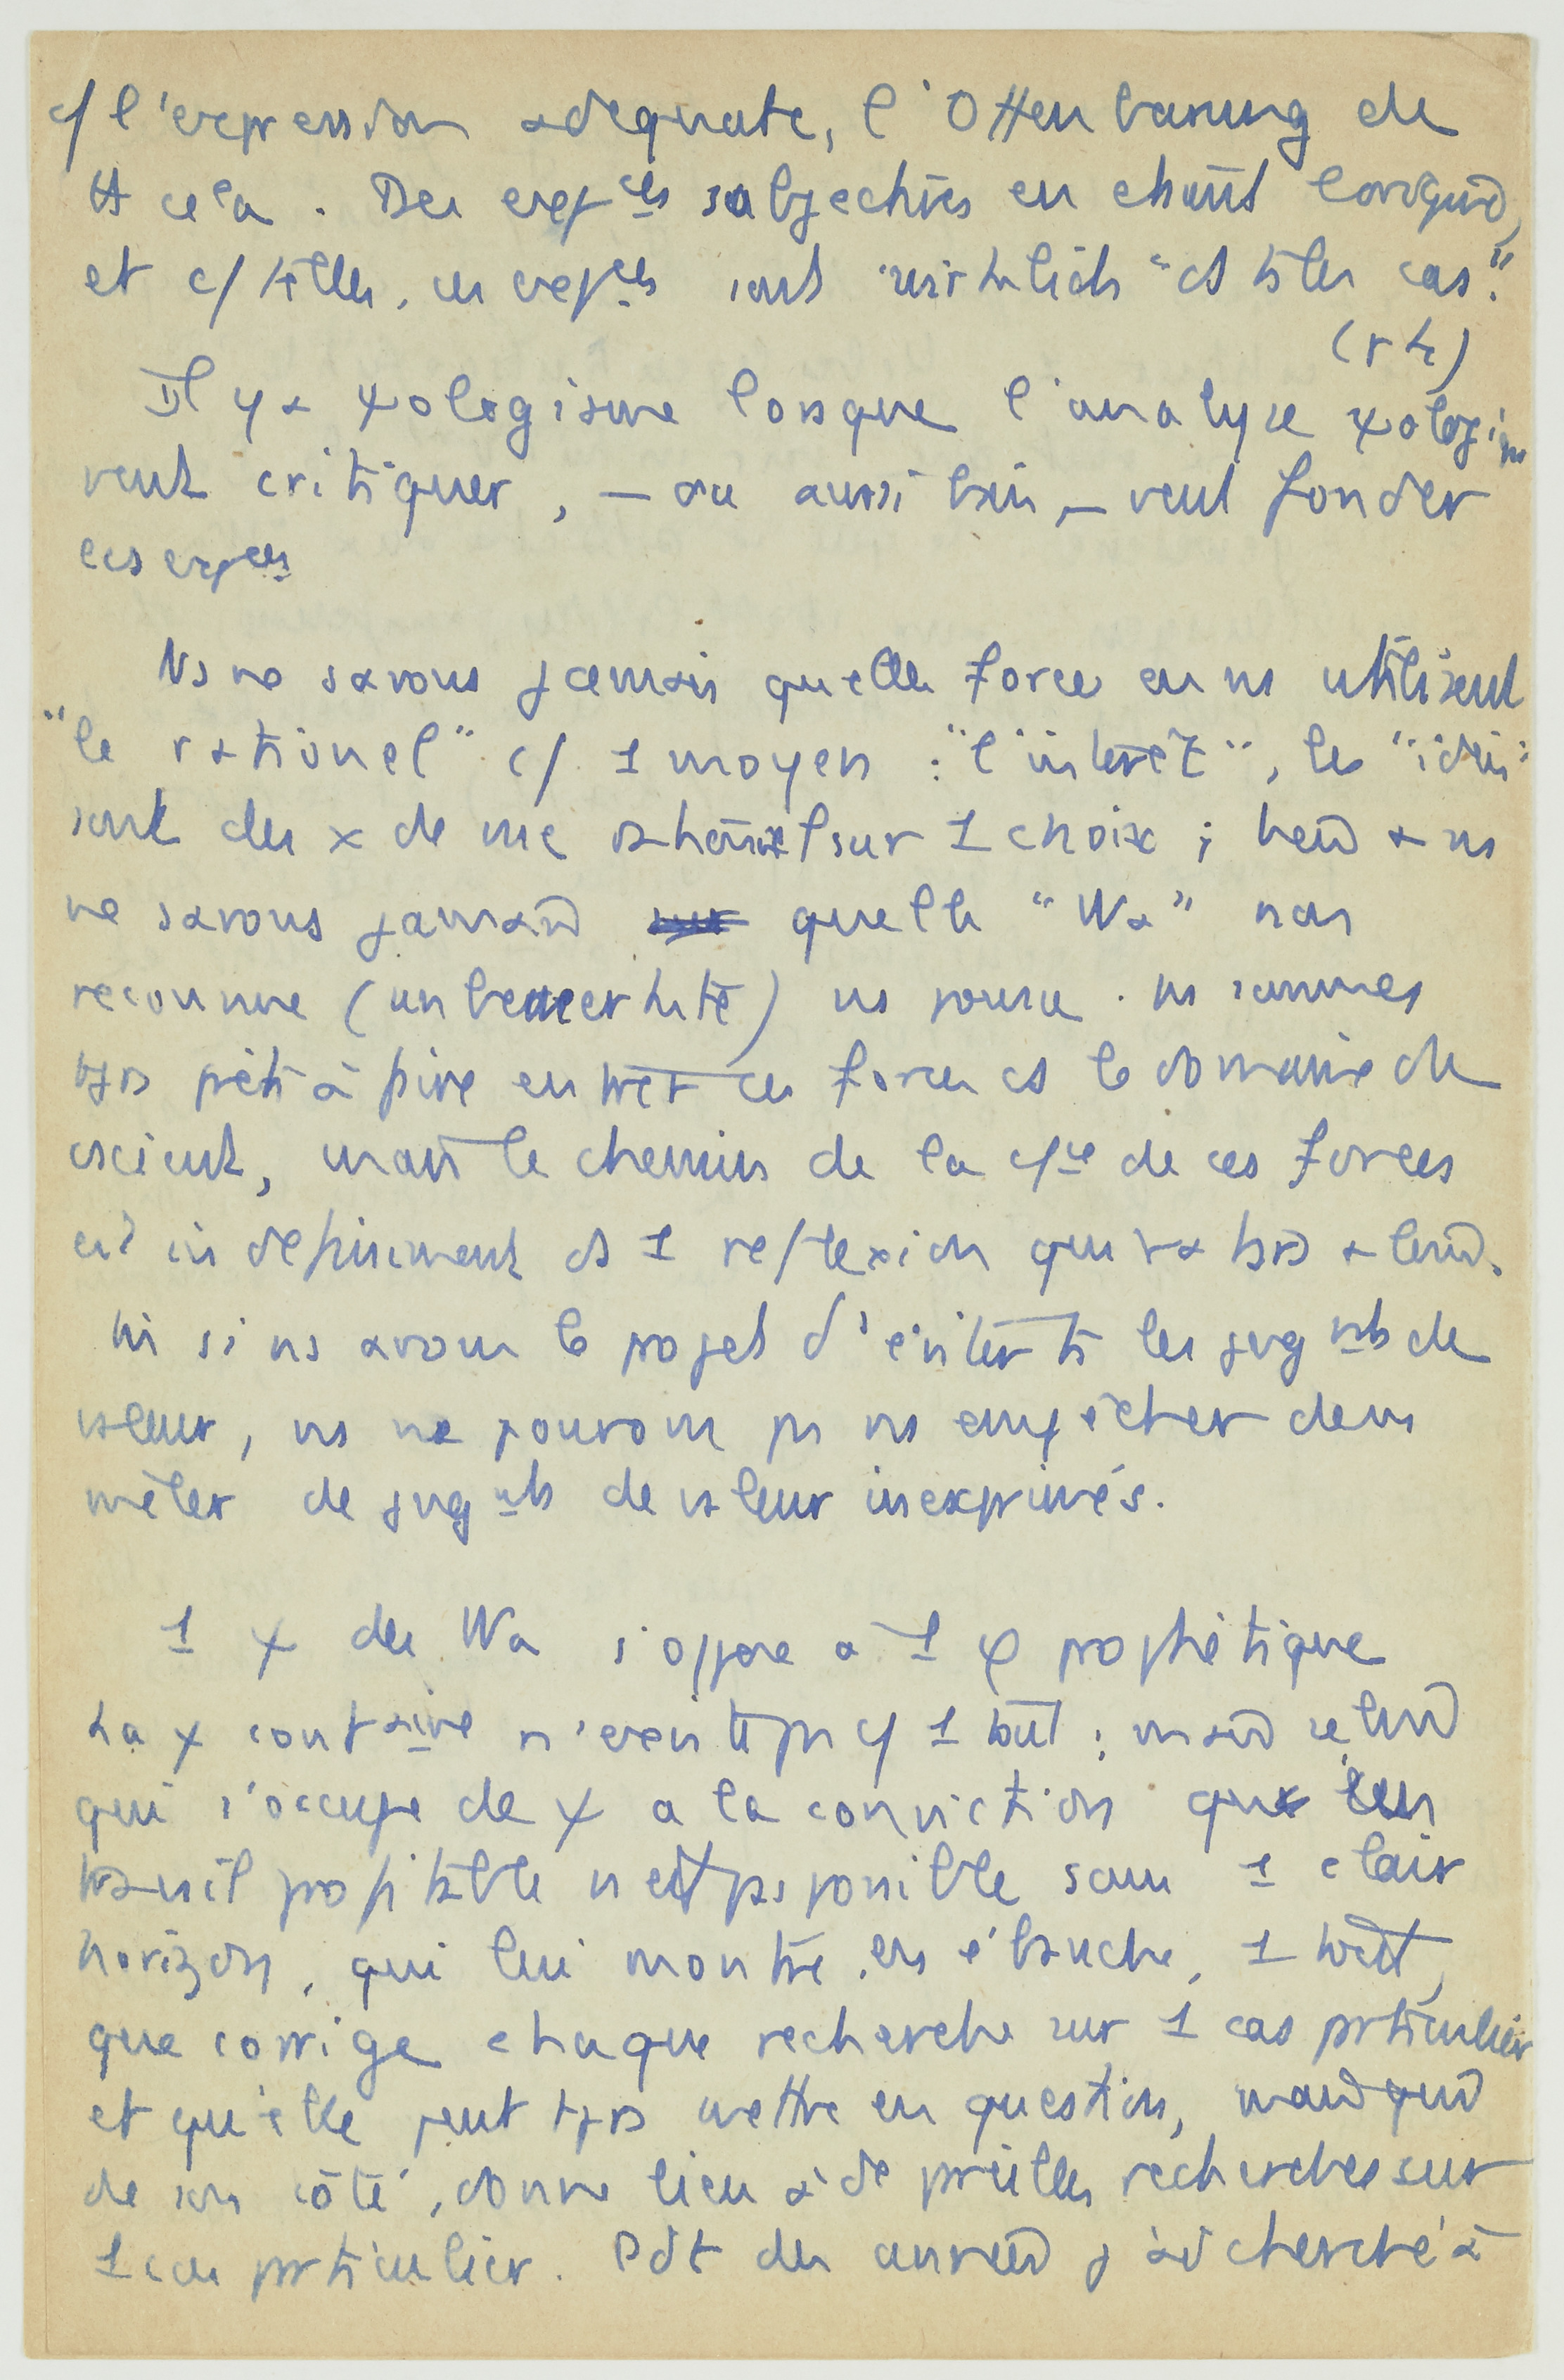 c/ l'expression adéquate, l'Offenbarung de
tt cela. Des exp^ces subjectives en
et c/ telles, ces exp^ces sont wirklich "ds ts les cas".
(rh)
Il y a ψologisme lorsque l'analyse ψologique
veut critiquer, — ou aussi bien, — veut fonder
ces exp^ces
Ns ne savons jamais quelles forces en ns utilisent
"le rationel" c/ 1 moyen : "l'intérêt", les "idées"
sont des x de vue sur 1 choix ;
ne savons jamais quelle "Wa" non
reconnue (unbemerkte) ns pousse. ns sommes
tjrs prêts à faire entrer ces forces ds le domaine du
cscient, mais le chemin de la c/^ue de ces forces
est indéfiniment ds 1 reflexion qui va
ni si ns avons le projet d'éviter ts les jug^nts de
valeur, ns ne pouvons ps ns empêcher de ns
mêler de jug^nts de valeur inexprimés.
1 ψ des Wa s'oppose à 1 φ prophétique
La ψ n'existe ps c/ 1 tout ; mais celui
qui s'occupe de ψ a la conviction que
travail profitable n'est ps possible sans 1 clair
horizon, qui lui montre, en ébauche, 1 tout,
que corrige chaque recherche sur 1 cas prticulier
et qu'elle peut tjrs mettre en question, mais qui
de son côté, donne lieu à de plles recherches sur
1 cas prticulier. Pdt des années j'ai cherché à